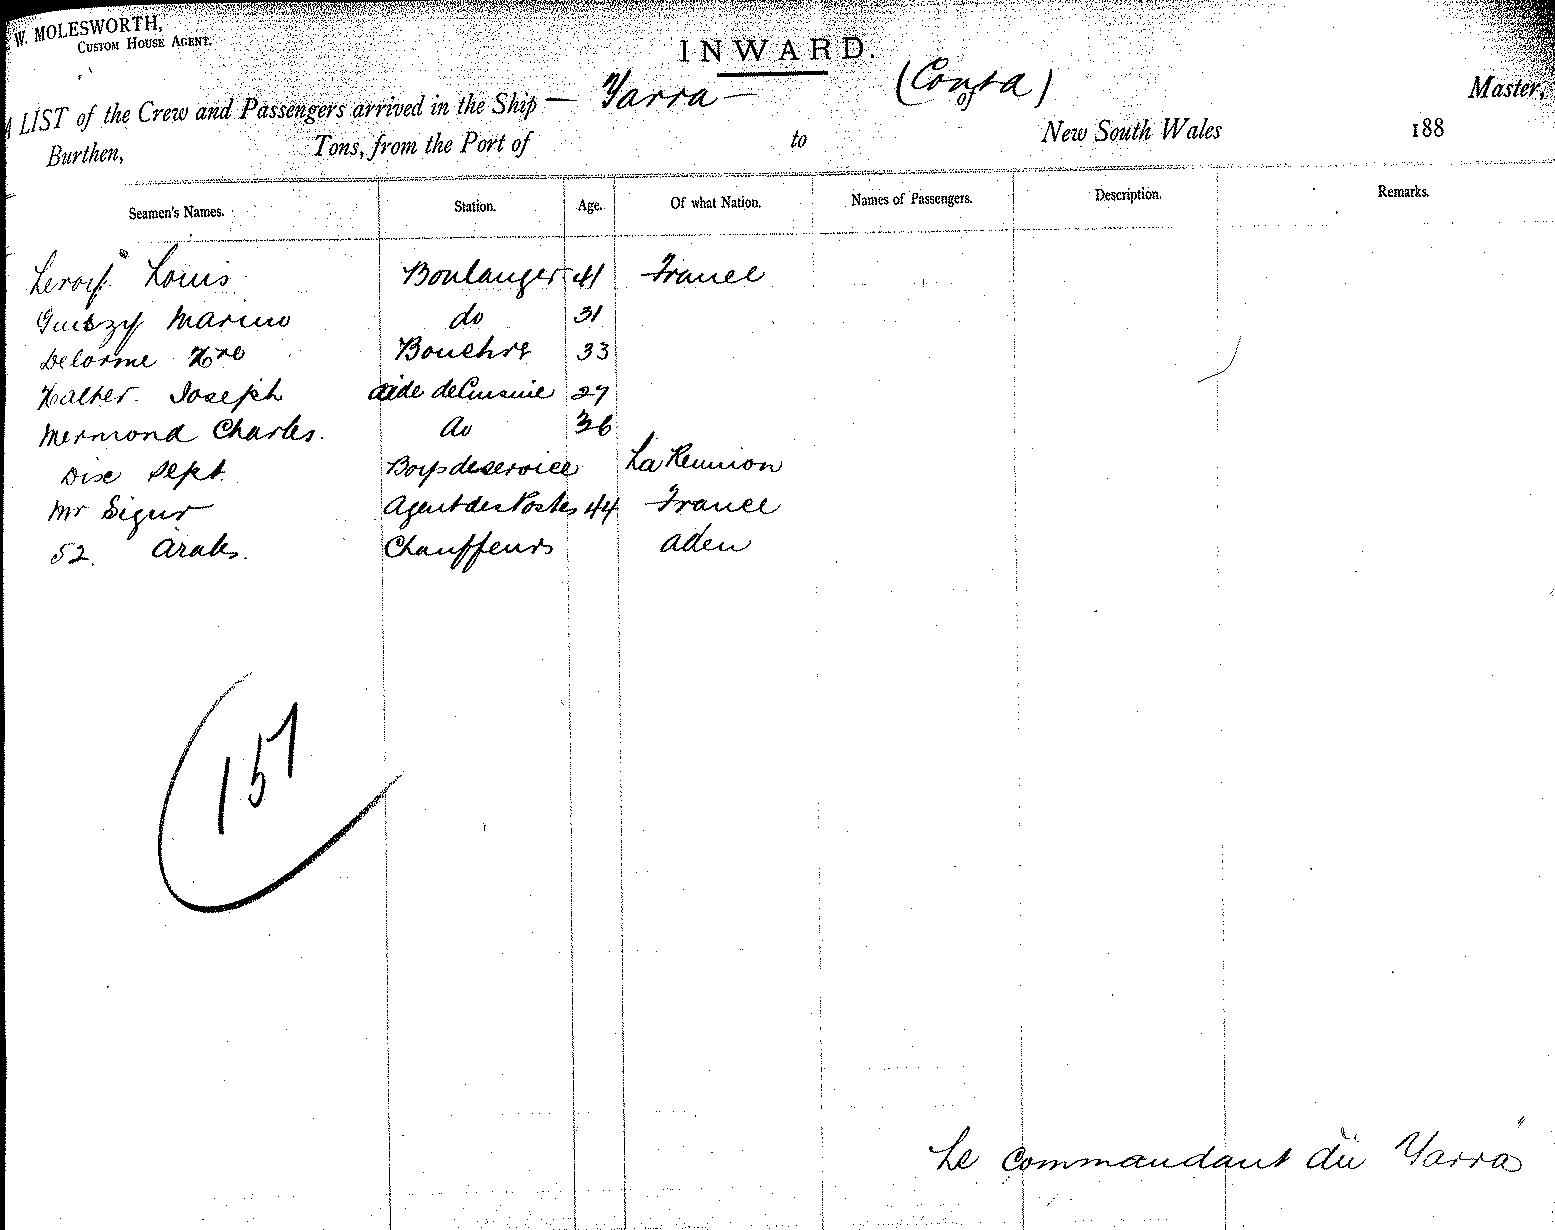 W. MOLESWORTH,
CUSTOM HOUSE AGENT.
INWARD.
A LIST of the Crew and Passengers arrived in the Ship — Yarra — (Conta) of Master,
Burthen, Tons, from the Port of to New South Wales 188
Seamen's Names. Station. Age. Of what Nation. Names of Passengers. Description. Remarks.
Leroy Louis Boulanger 41 France
Marino do 31
Delorme Hre Bouchre 33
Halter Joseph aide de Cuisine 27
Mermond Charles. do 36
Dix Sept Boys de service La Reunion
Mr Sigur Agent des Postes 44 France
52. Arabs. Chauffeurs Aden
157
Le Commandant du Yarra